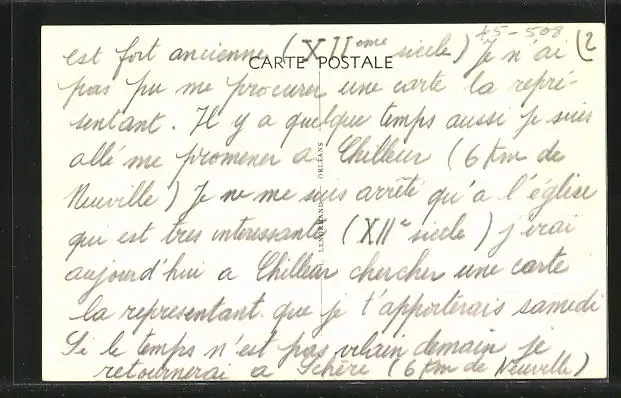 45-508
est fort ancienne (XIIeme siecle) Je n'ai (2
CARTE POSTALE
pas pu me procurer une carte la repré-
sentant. Il y a quelque temps aussi je suis
allé me promener a Chilleur (6 Km de
Neuville) Je ne me suis arrêté qu'a l'église
qui est tres interessante (XIIe siecle) j'irai
aujourd'hui a Chilleur chercher une carte
la representant que je t'apporterais samedi
Si le temps n'est pas vilain demain je
retournerai a (6 Km de Neuville)
LENORMAND ORLÉANS